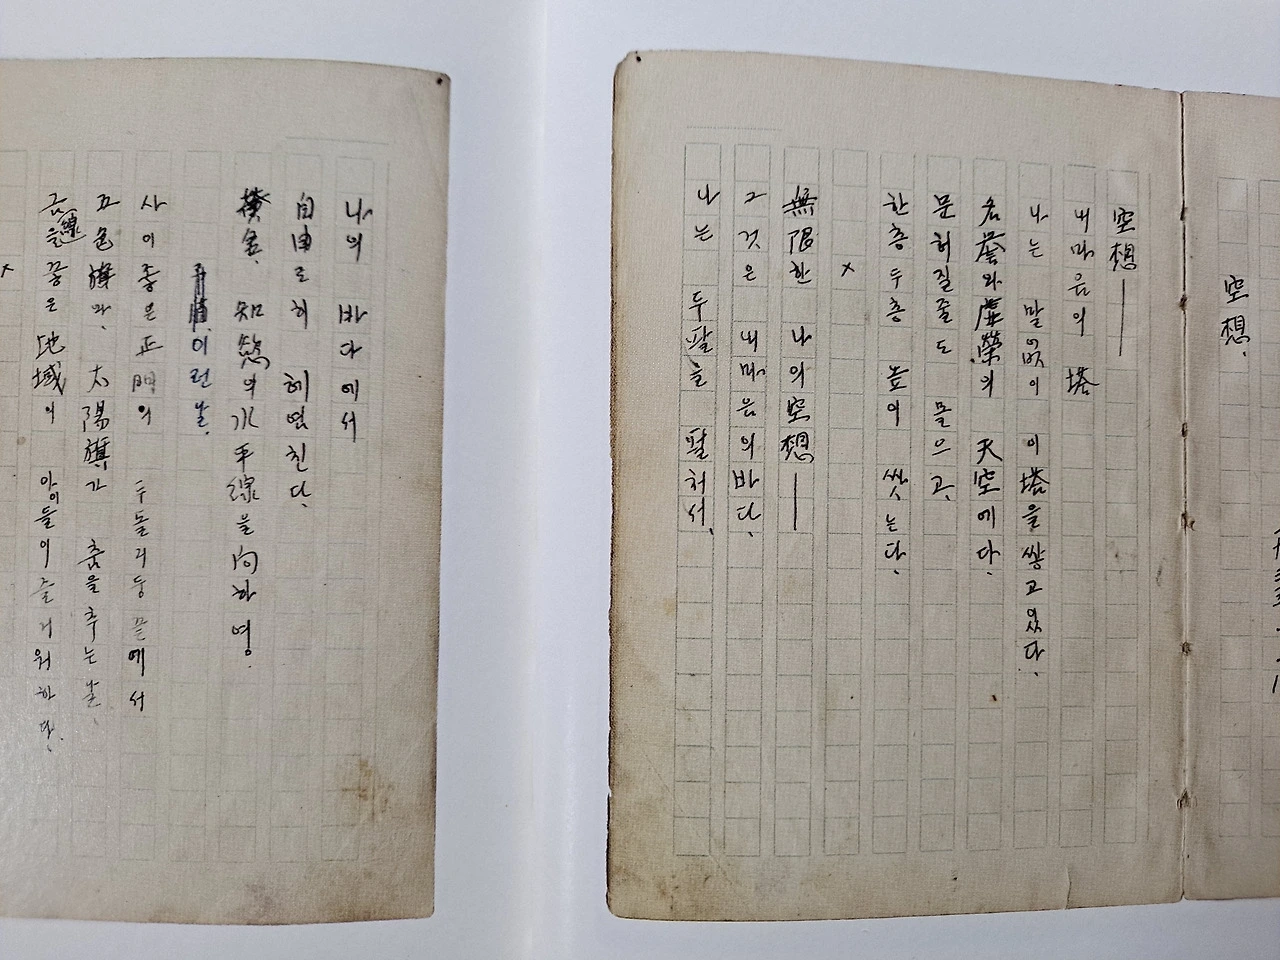 空想.
空想――
내마음의 塔
나는 말없이 이塔을쌓고있다.
名譽와虛榮의 天空에다.
문허질줄도 몰으고.
한층두층 높이 쌋는다.
×
無限한 나의空想――
그것은 내마음의바다.
나는 두팔을 펄처서.
나의 바다에서
自由로히 헤염친다.
金. 知慾의水平線을向하여.
이런날.
사이좋은正門의 두돌기둥끝에서
五色旗와, 太陽旗가 춤을추는날,
금線을끊은地域의 아이들이즐거워하다.
×